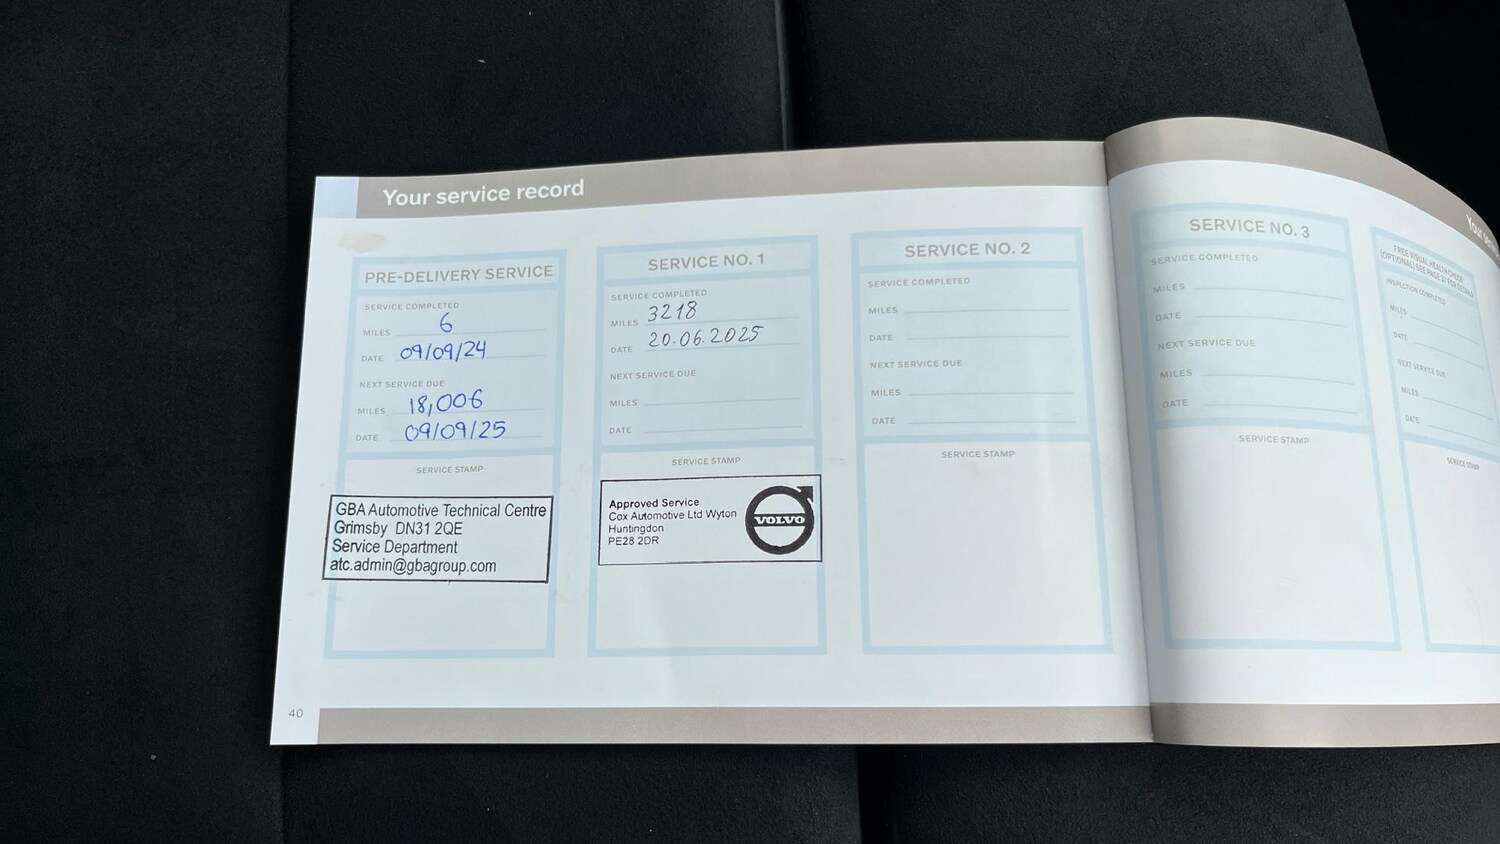 Your service record
PRE-DELIVERY SERVICE
SERVICE COMPLETED
MILES 6
DATE 09/09/24
NEXT SERVICE DUE
MILES 18,006
DATE 09/09/25
SERVICE STAMP
GBA Automotive Technical Centre
Grimsby DN31 2QE
Service Department
atc.admin@gbagroup.com
SERVICE NO. 1
SERVICE COMPLETED
MILES 3218
DATE 20.06.2025
NEXT SERVICE DUE
MILES
DATE
SERVICE STAMP
Approved Service
Cox Automotive Ltd Wyton
Huntingdon
PE28 2DR
VOLVO
SERVICE NO. 2
SERVICE COMPLETED
MILES
DATE
NEXT SERVICE DUE
MILES
DATE
SERVICE STAMP
40
SERVICE NO. 3
SERVICE COMPLETED
MILES
DATE
NEXT SERVICE DUE
MILES
DATE
SERVICE STAMP
Your
FREE VISUAL HEALTH CHECK
(OPTIONAL) SEE PAGE 37 FOR DETAILS
INSPECTION COMPLETED
MILES
DATE
NEXT SERVICE DUE
MILES
DATE
SERVICE STAMP